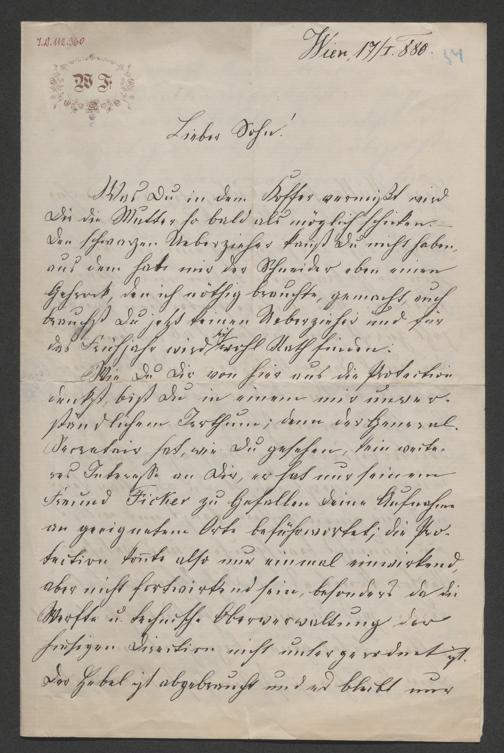 I.N. 112.360
Wien, 17/I. 880.
54
W F
Lieber Sohn!
Was Du in dem Koffer vermißt wird
Dir die Mutter so bald als möglich schicken.
Den schwarzen Ueberzieher kannst Du nicht haben,
aus dem hat mir der Schneider eben einen
Gehrock, den ich nöthig brauchte, gemacht, auch
brauchst Du jetzt keinen Ueberzieher und für
das Frühjahr wird sich wohl Rath finden.
Wie Du Dir von hier aus die Protection
denkst, bist Du in einem mir unver-
ständlichem Irrthum; denn der General-
Secretair hat, wie Du gesehen, kein weite-
res Interesse an Dir, er hat nur seinem
Freund Ficker zu Gefallen Deine Aufnahme
an geeignetem Orte befürwortet; die Pro-
tection konnte also nur einmal einwirkend,
aber nicht fortwirkend sein, besonders da die
Werfte u. technische Oberverwaltung der
hiesigen Direction nicht untergeordnet ist.
Der Hebel ist abgebraucht und es bleibt nur